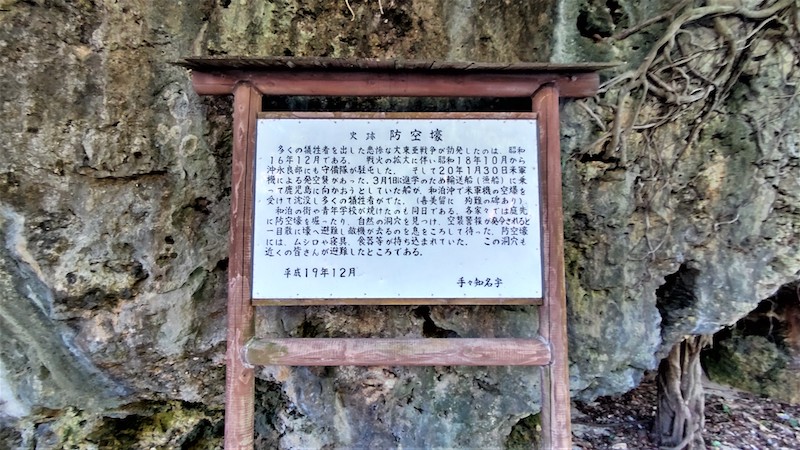 史跡 防空壕
多くの犠牲者を出した悲惨な大東亜戦争が勃発したのは、昭和
16年12月である。 戦火の拡大に伴い昭和18年10月から
沖永良部にも守備隊が駐屯した。 そして20年1月30日米軍
機による発空襲があった。3月1日に進学のため輸送船(漁船)に乗
って鹿児島に向かおうとしていた船が、和泊沖で米軍機の空爆を
受けて沈没し多くの犠牲者がでた。(喜美留に 殉難の碑あり)
和泊の街や青年学校が焼けたのも同日である。各家々では庭先
に防空壕を堀ったり、自然の洞穴を見つけ、空襲警報が発令されると
一目散に壕へ避難し敵機が去るのを息をころして待った。防空壕
には、ムシロや寝具、食器等が持ち込まれていた。 この洞穴も
近くの皆さんが避難したところである。
平成19年12月
手々知名字